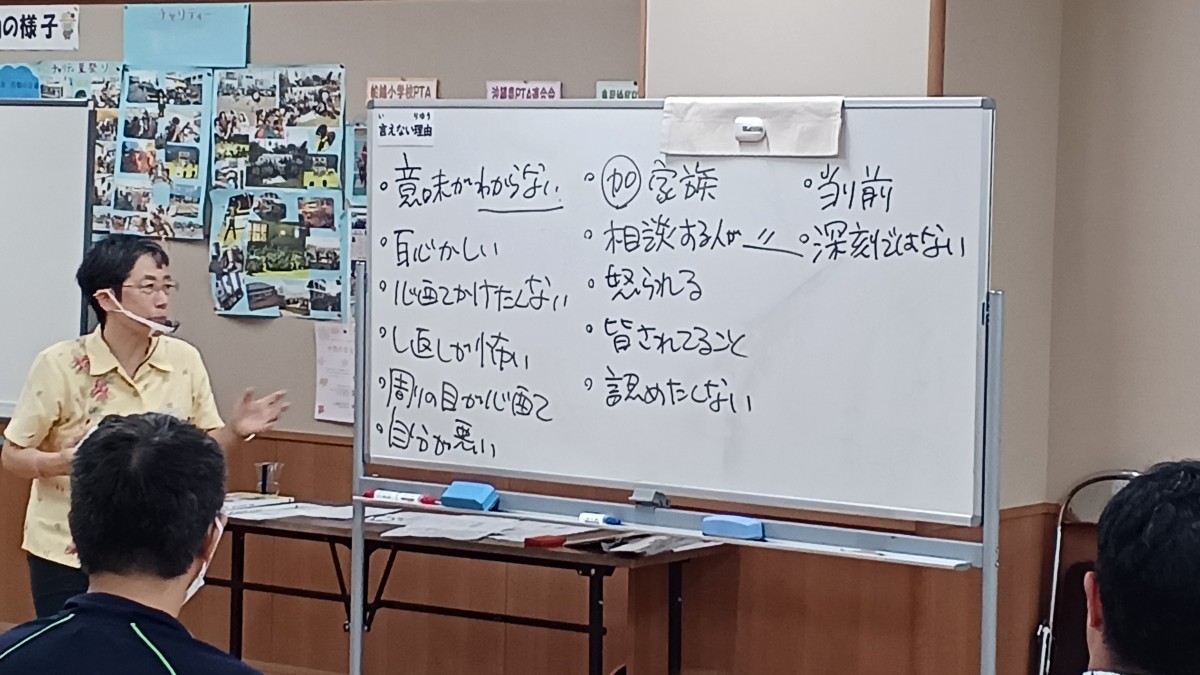 の様子
チャリティー
小学校PTA
沖縄県PTA連合会
い りゆう
言えない理由
・意味がわからない
・恥かしい
・心配かけたくない
・し返しが怖い
・周りの目が心配
・自分が悪い
・加 家族
・相談する人が 〃
・怒られる
・皆されてること
・認めたくない
・当り前
・深刻ではない